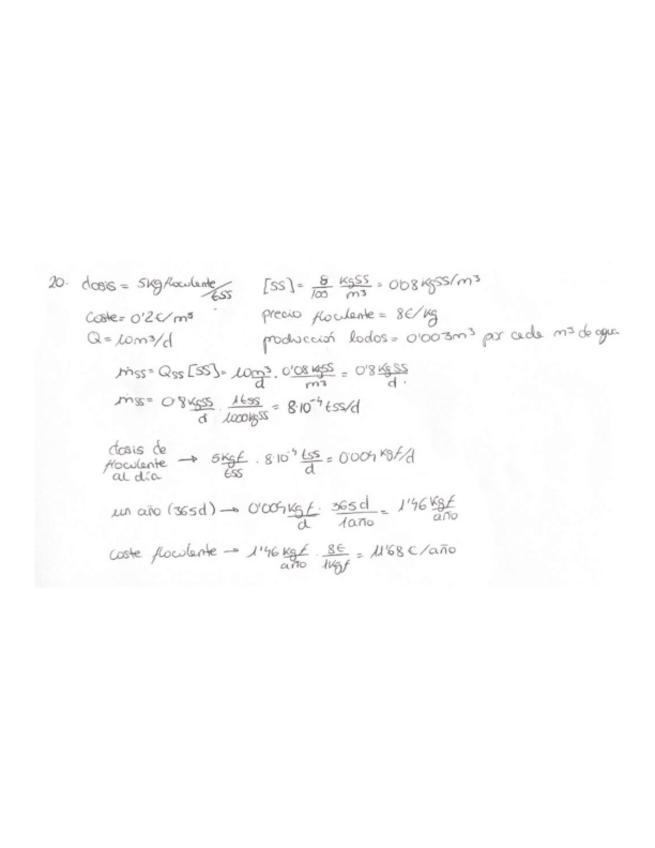 20. dosis = 5kg floculente/tSS [SS] = 8/100 kgSS/m³ = 0'08 kgSS/m³
Coste = 0'2 €/m³ precio floculente = 8€/kg
Q = 10m³/d producción lodos = 0'003m³ por cada m³ de agua
ṁss = Qss [SS] = 10 m³/d · 0'08 kgSS/m³ = 0'8 kgSS/d.
ṁss = 0'8 kgSS/d · 1tSS/1000kgSS = 8·10⁻⁴ tSS/d
dosis de
floculente → 5kgf/tSS · 8·10⁻⁴ tSS/d = 0'004 kgf/d
al día
un año (365d) → 0'004 kgf/d · 365d/1año = 1'46 kgf/año
coste floculente → 1'46 kgf/año · 8€/1kgf = 11'68 €/año